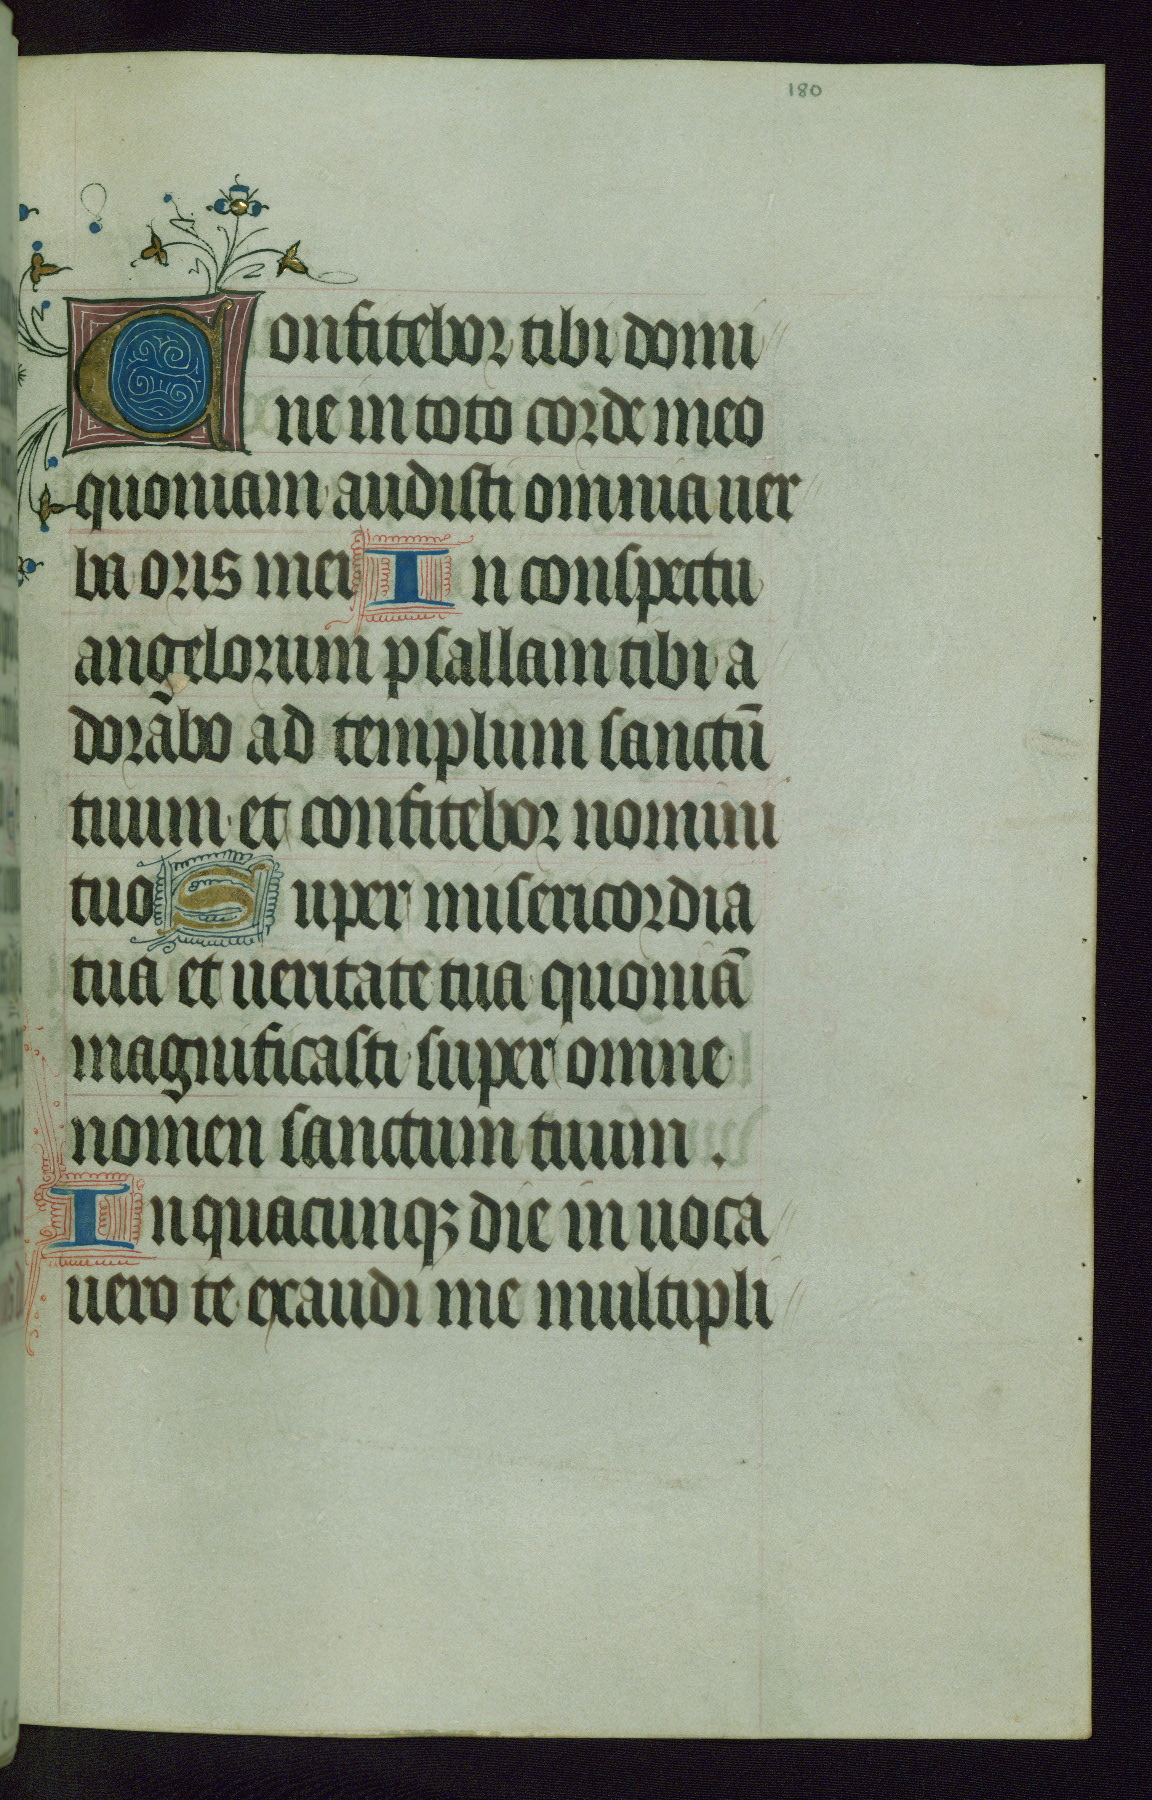 180
Confitebor tibi domi
ne in toto corde meo
quoniam audisti omnia uer
ba oris mei In conspectu
angelorum psallam tibi a
dorabo ad templum sanctū
tuum et confitebor nomini
tuo Super misericordia
tua et ueritate tua quoniā
magnificasti super omne
nomen sanctum tuum .
In quacunqꝫ die in uoca
uero te exaudi me multipli